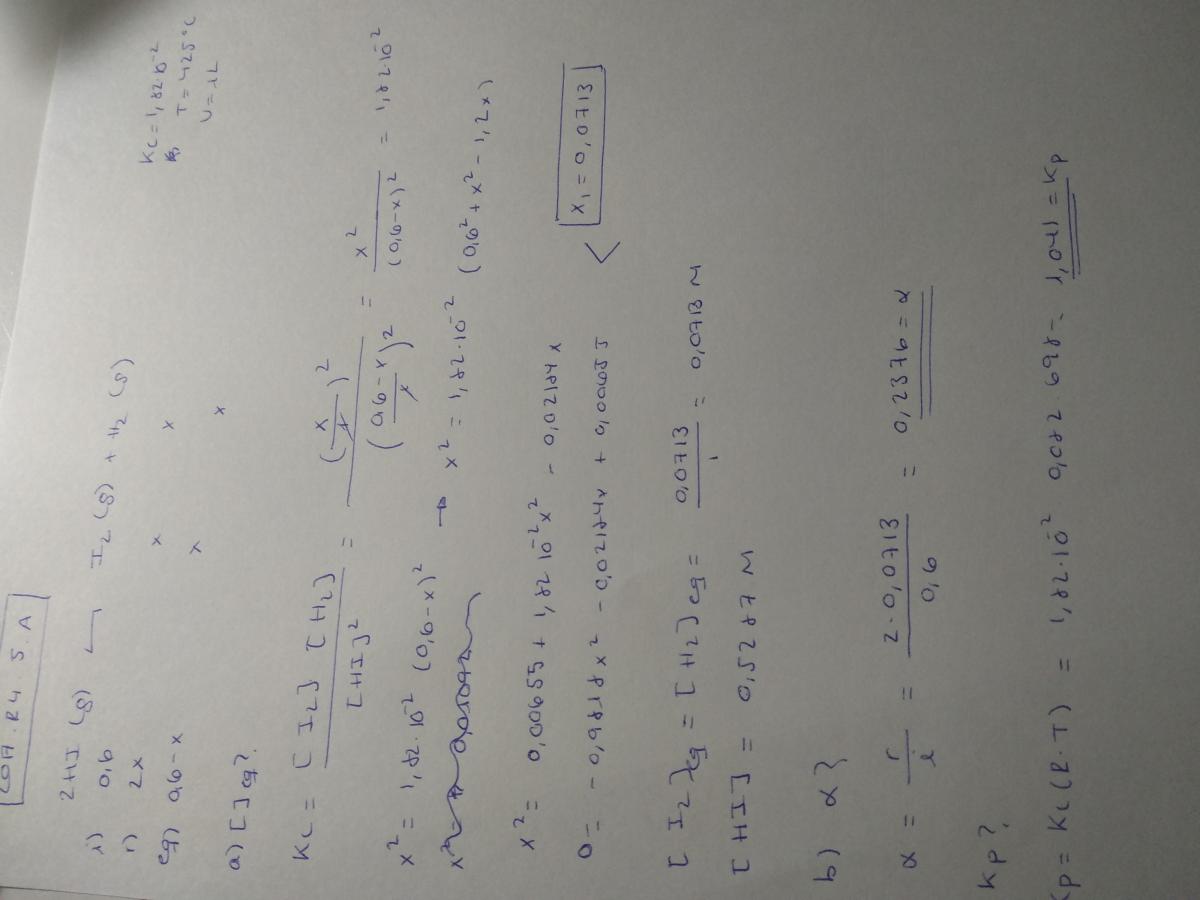 2017. R4. 5. A
Kc = 1,82·10⁻²
T = 425°C
V = 1L
2HI (g) ⇌ I₂ (g) + H₂ (g)
i) 0,6
r) 2x x x
eq) 0,6-x x x
a) [ ] eq?
Kc = [I₂] [H₂] / [HI]² = (x/1)² / (0,6-x/1)² = x² / (0,6-x)² = 1,82·10⁻²
x² = 1,82·10⁻² (0,6-x)² → x² = 1,82·10⁻² (0,6² + x² - 1,2x)
x² = 0,00655 + 1,82 10⁻² x² - 0,02184x
0 = -0,9818x² - 0,02184x + 0,00655 < x₁ = 0,0713
[I₂]eq = [H₂]eq = 0,0713 / 1 = 0,0713 M
[HI] = 0,5287 M
b) α?
α = r / i = 2·0,0713 / 0,6 = 0,2376 = α
Kp?
Kp = Kc (R·T) = 1,82·10² 0,082 · 698 = 1,041 = Kp